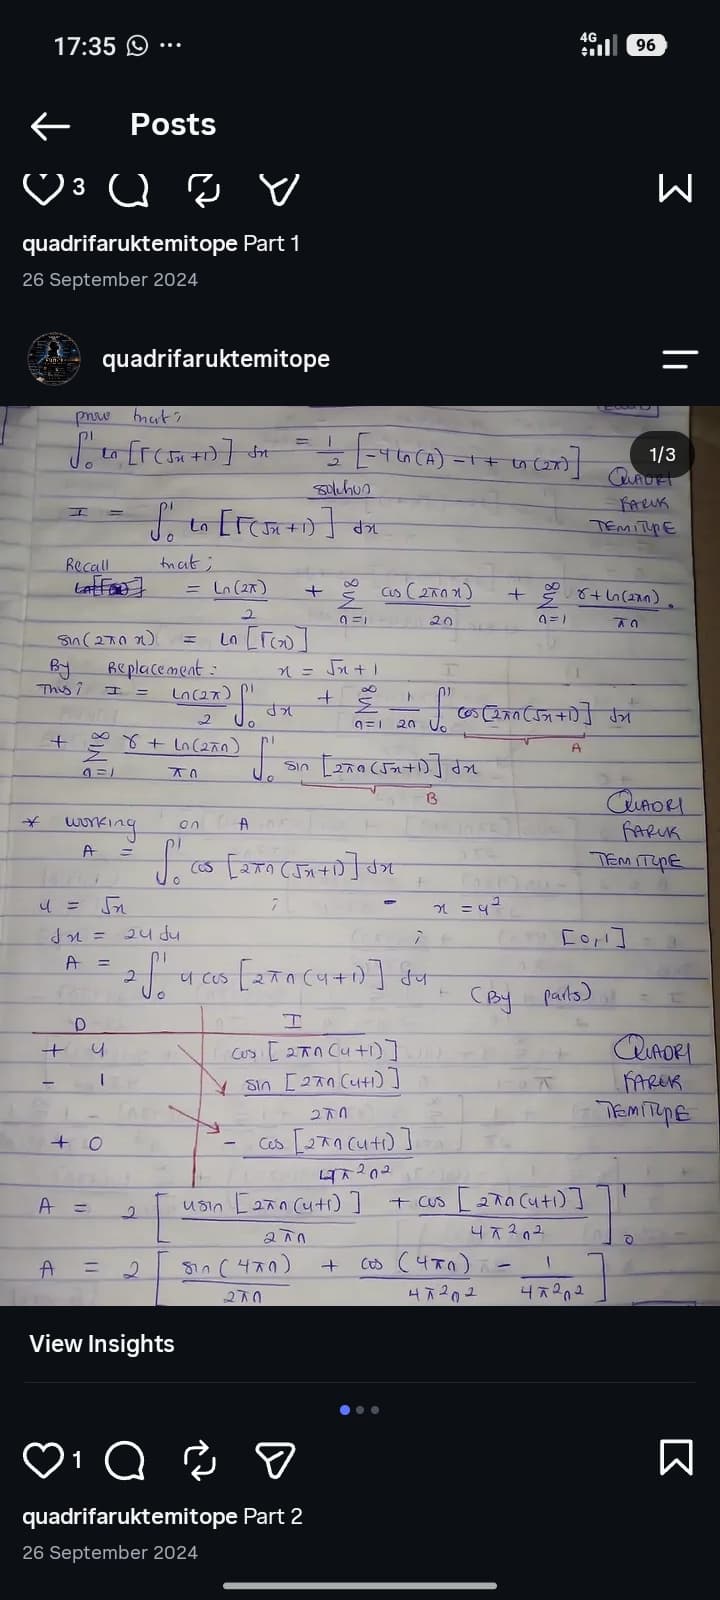 17:35 ...
4G 96
Posts
3
quadrifaruktemitope Part 1
26 September 2024
quadrifaruktemitope
1/3
prove that;
∫₀¹ ln [Γ(√x +1)] dx = 1/2 [-4 ln(A) - 1 + ln(2π)]
QUADRI
FARUK
TEMITOPE
solution
I = ∫₀¹ ln [Γ(√x +1)] dx
Recall that;
= ln(2π)/2 + ∞Σn=1 cos(2πnx)/2n + ∞Σn=1 γ+ln(2πn)/πn .
sin(2πn x) = ln [Γ(x)]
By Replacement: x = √x + 1
Thus; I = ln(2π)/2 ∫₀¹ dx + ∞Σn=1 1/2n ∫₀¹ cos[2πn(√x+1)] dx
A
+ ∞Σn=1 γ + ln(2πn)/πn ∫₀¹ sin [2πn(√x+1)] dx
B
QUADRI
FARUK
TEMITOPE
* working on A
A = ∫₀¹ cos [2πn(√x+1)] dx
u = √x ; - x = u²
dx = 2u du ; [0,1]
A = 2∫₀¹ u cos [2πn(u+1)] du (By parts)
D I
+ u cos [2πn(u+1)]
- 1 sin [2πn(u+1)]/2πn
+ 0 - cos [2πn(u+1)]/4π²n²
QUADRI
FARUK
TEMITOPE
A = 2 [ u sin [2πn(u+1)]/2πn + cos [2πn(u+1)]/4π²n² ]₀¹
A = 2 [ sin(4πn)/2πn + cos(4πn)/4π²n² - 1/4π²n² ]
View Insights
1
quadrifaruktemitope Part 2
26 September 2024